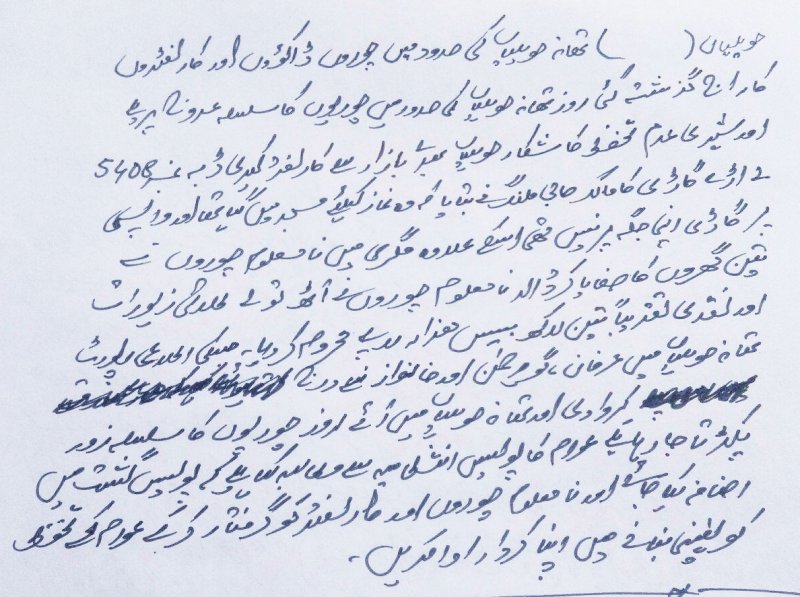 حویلیاں ( ) تھانہ حویلیاں کی حدود میں چوروں ڈاکوؤں اور کار لفٹروں
کا راج گذشتہ کئی روز تھانہ حویلیاں کی حدود میں چوریوں کا سلسلہ عروج پر ہے
اور شہری عدم تحفظ کا شکار حویلیاں بازار سے کار لفٹر کیری ڈبہ نمبر 5408
لے اڑے گاڑی کا مالک حاجی ملنگ نے بتایا کہ وہ نماز کیلئے مسجد میں گیا تھا اور واپسی
پر گاڑی اپنی جگہ پر نہیں تھی اسکے علاوہ میں نامعلوم چوروں نے
تین گھروں کا صفایا کر ڈالا نامعلوم چوروں نے آٹھ تولے طلائی زیورات
اور نقدی تقریباً تین لاکھ بیس ہزار روپے سے محروم کر دیا۔ جسکی اطلاعی رپورٹ
تھانہ حویلیاں میں عرفان، گوہر رحمٰن اور خانواز نے درج
کروا دی اور تھانہ حویلیاں میں آئے روز چوریوں کا سلسلہ زور
پکڑتا جا رہا ہے عوام کا پولیس انتظامیہ سے مطالبہ کیا ہے کہ پولیس گشت میں
اضافہ کیا جائے اور نامعلوم چوروں اور کار لفٹر کو گرفتار کر کے عوام کے تحفظ
کو یقینی بنانے میں اپنا کردار ادا کریں۔